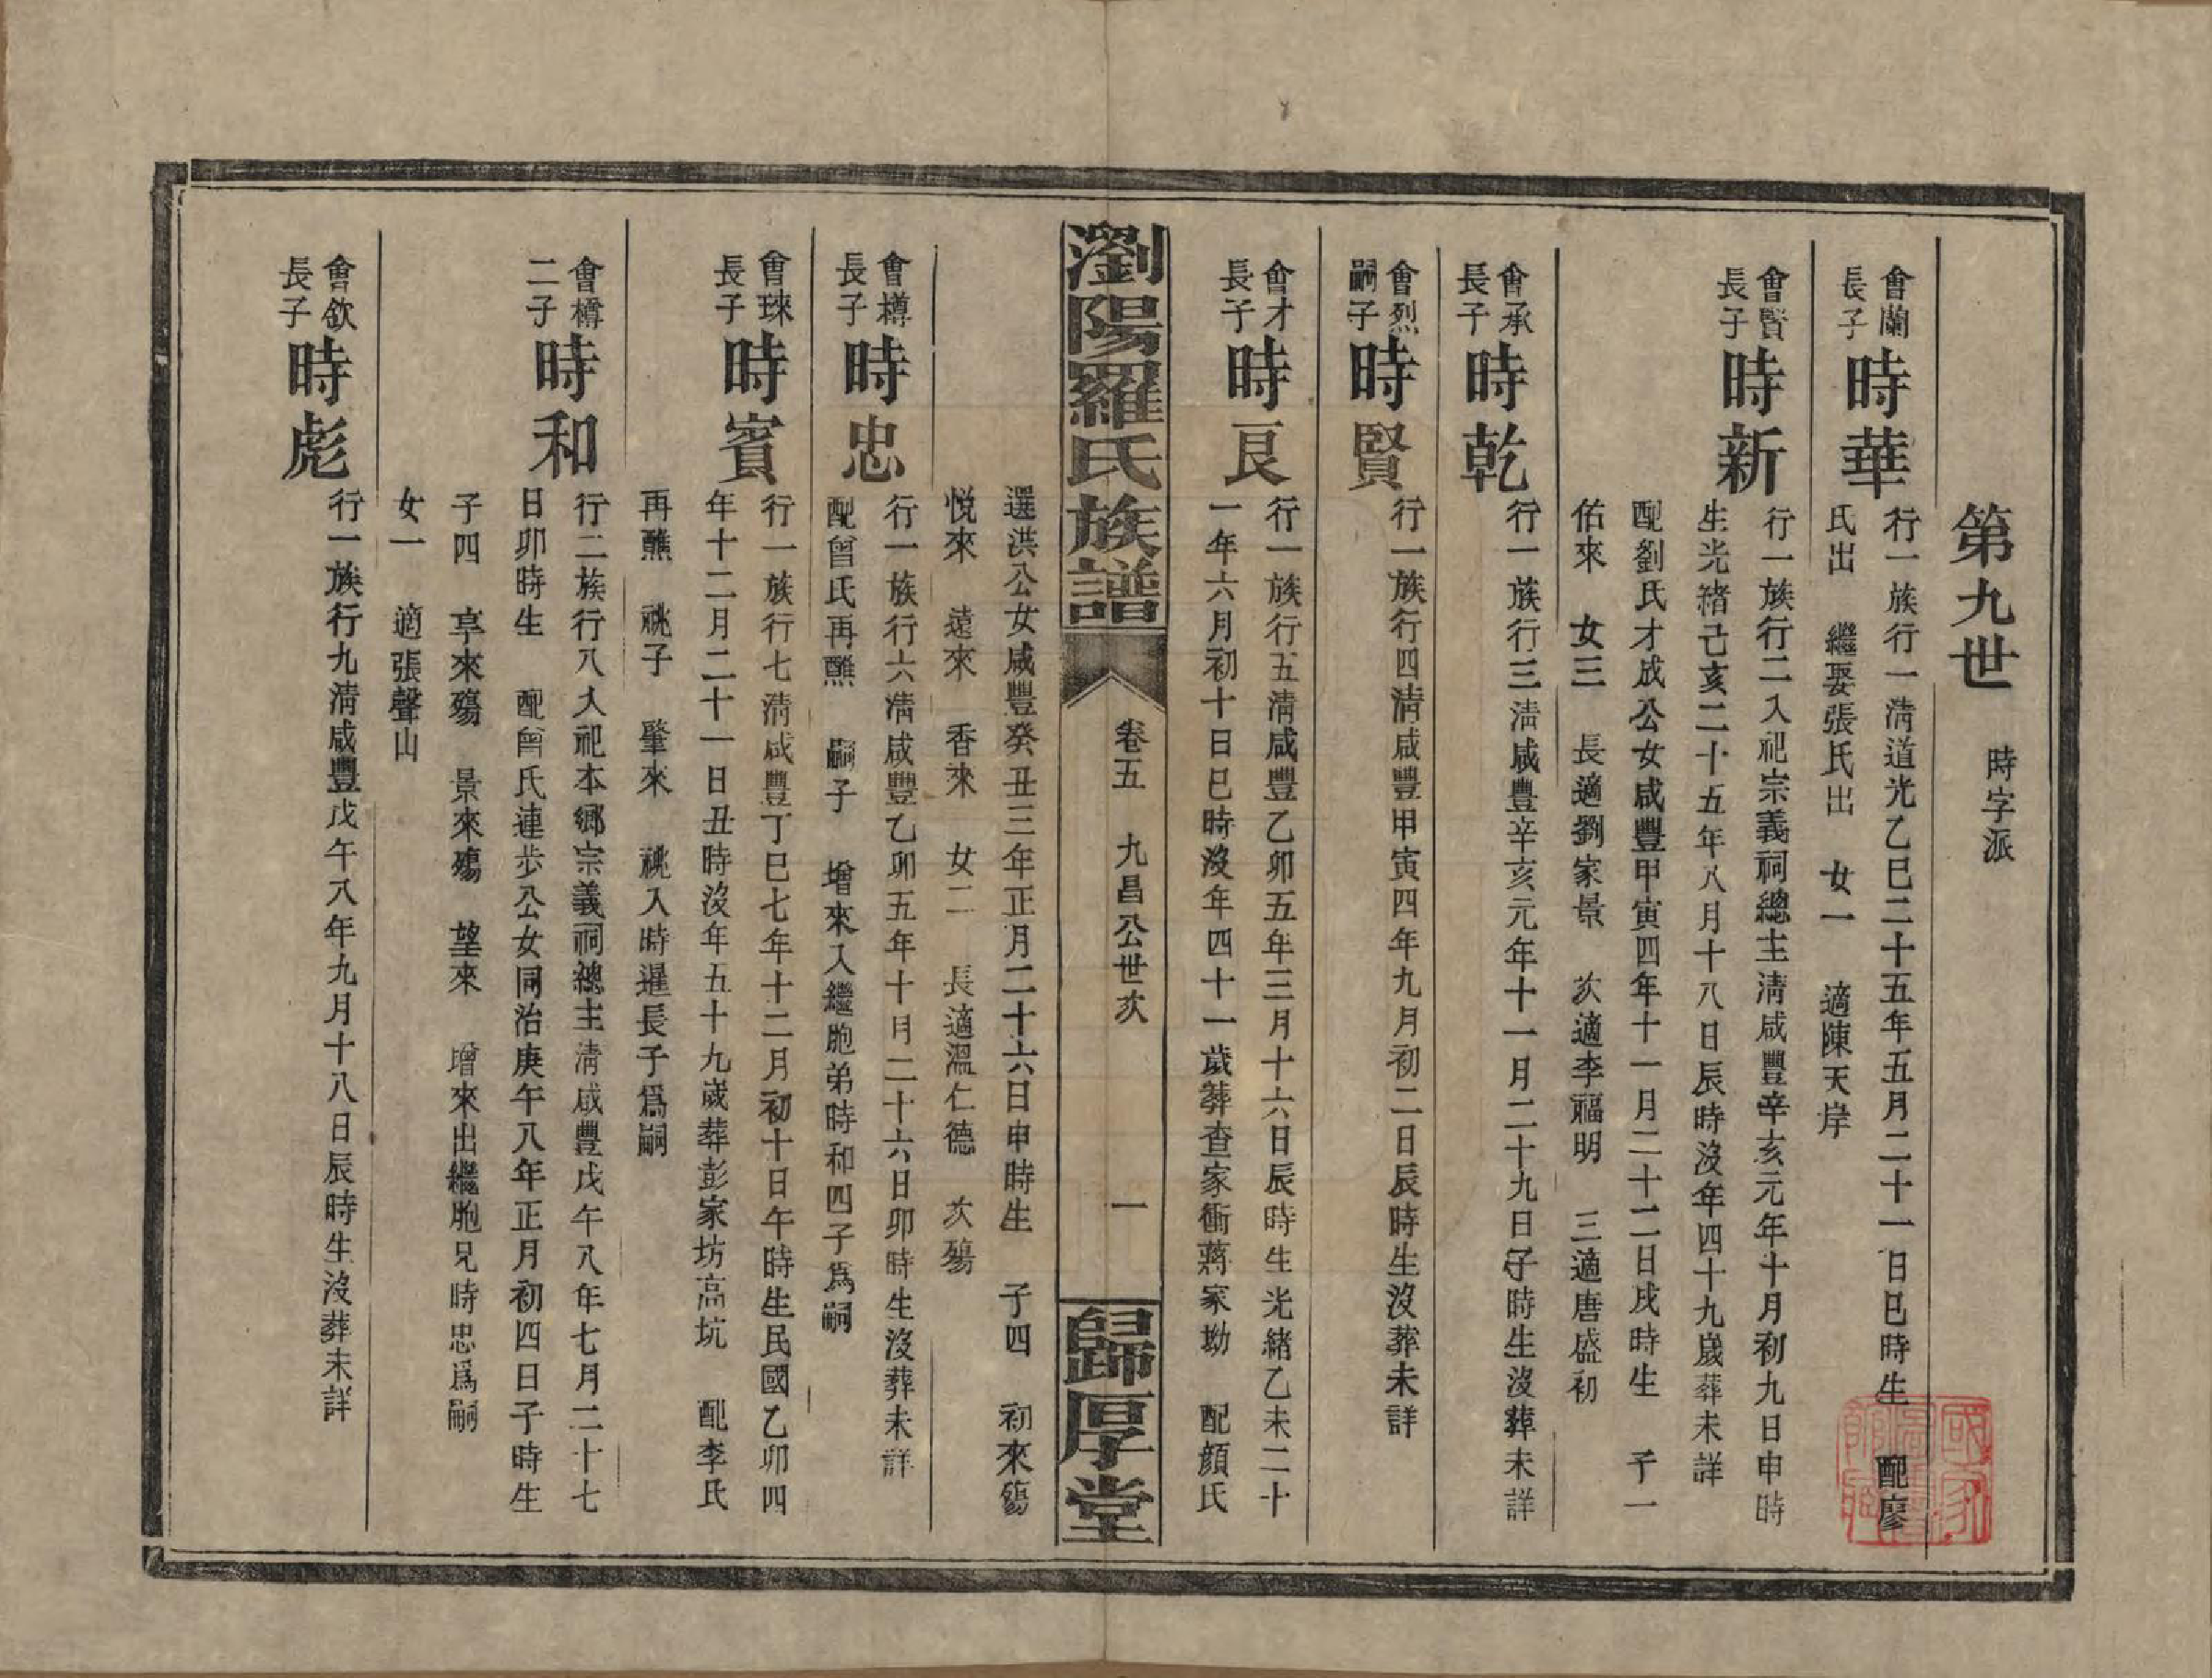 第九世 時字派
會蘭長子 時華 行一族行一淸道光乙巳二十五年五月二十一日巳時生 配廖
氏出 繼娶張氏出 女一 適陳天岸
會賢長子 時新 行一族行二入祀宗義祠總主淸咸豐辛亥元年十月初九日申時
生光緒己亥二十五年八月十八日辰時沒年四十九歲葬未詳
配劉氏才成公女咸豐甲寅四年十一月二十二日戌時生 子一
佑來 女三 長適劉家景 次適李福明 三適唐盛初
會承長子 時乾 行一族行三淸咸豐辛亥元年十一月二十九日子時生沒葬未詳
會烈嗣子 時賢 行一族行四淸咸豐甲寅四年九月初二日辰時生沒葬未詳
會才長子 時良 行一族行五淸咸豐乙卯五年三月十六日辰時生光緒乙未二十
一年六月初十日巳時沒年四十一歲葬查家衝蔣家坳 配顏氏
瀏陽羅氏族譜 卷五 九昌公世次 一 歸厚堂
選洪公女咸豐癸丑三年正月二十六日申時生 子四 初來殤
悅來 遠來 香來 女二 長適溫仁德 次殤
會樽長子 時忠 行一族行六淸咸豐乙卯五年十月二十六日卯時生沒葬未詳
配曾氏再醮 嗣子 增來入繼胞弟時和四子爲嗣
會琜長子 時賓 行一族行七淸咸豐丁巳七年十二月初十日午時生民國乙卯四
年十二月二十一日丑時沒年五十九歲葬彭家坊高坑 配李氏
再醮 祧子 肇來 祧入時暹長子爲嗣
會樽二子 時和 行二族行八入祀本鄉宗義祠總主淸咸豐戊午八年七月二十七
日卯時生 配曾氏連步公女同治庚午八年正月初四日子時生
子四 享來殤 景來殤 望來 增來出繼胞兄時忠爲嗣
女一 適張聲山
會欽長子 時彪 行一族行九淸咸豐戊午八年九月十八日辰時生沒葬未詳